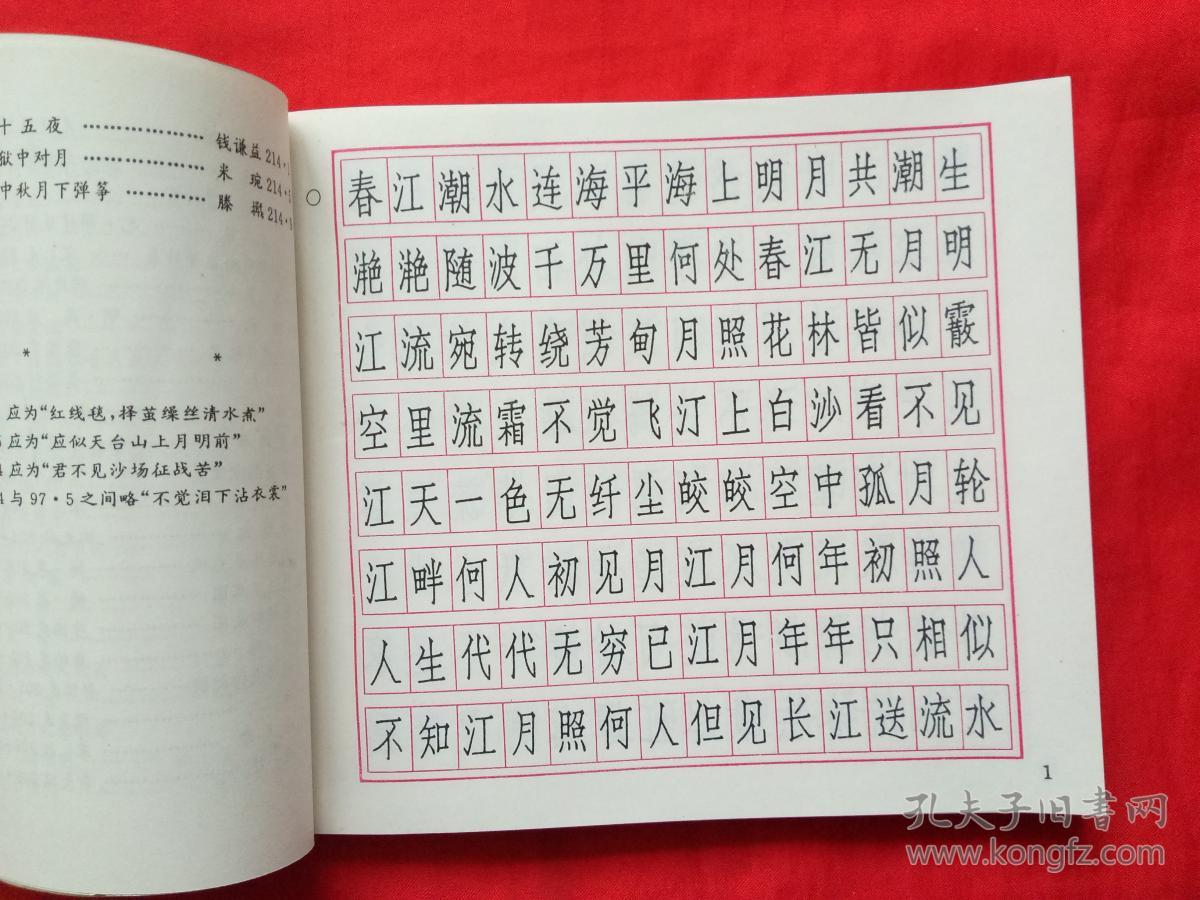 十五夜 ……………… 钱谦益214·
狱中对月 ……………… 米 琬214·
中秋月下弹筝 ………… 滕 214·
* *
应为“红线毯,择茧缫丝清水煮”
应为“应似天台山上月明前”
应为“君不见沙场征战苦”
4与97·5之间略“不觉泪下沾衣裳”
春江潮水连海平海上明月共潮生
滟滟随波千万里何处春江无月明
江流宛转绕芳甸月照花林皆似霰
空里流霜不觉飞汀上白沙看不见
江天一色无纤尘皎皎空中孤月轮
江畔何人初见月江月何年初照人
人生代代无穷已江月年年只相似
不知江月照何人但见长江送流水
1
孔夫子旧书网
www.kongfz.com